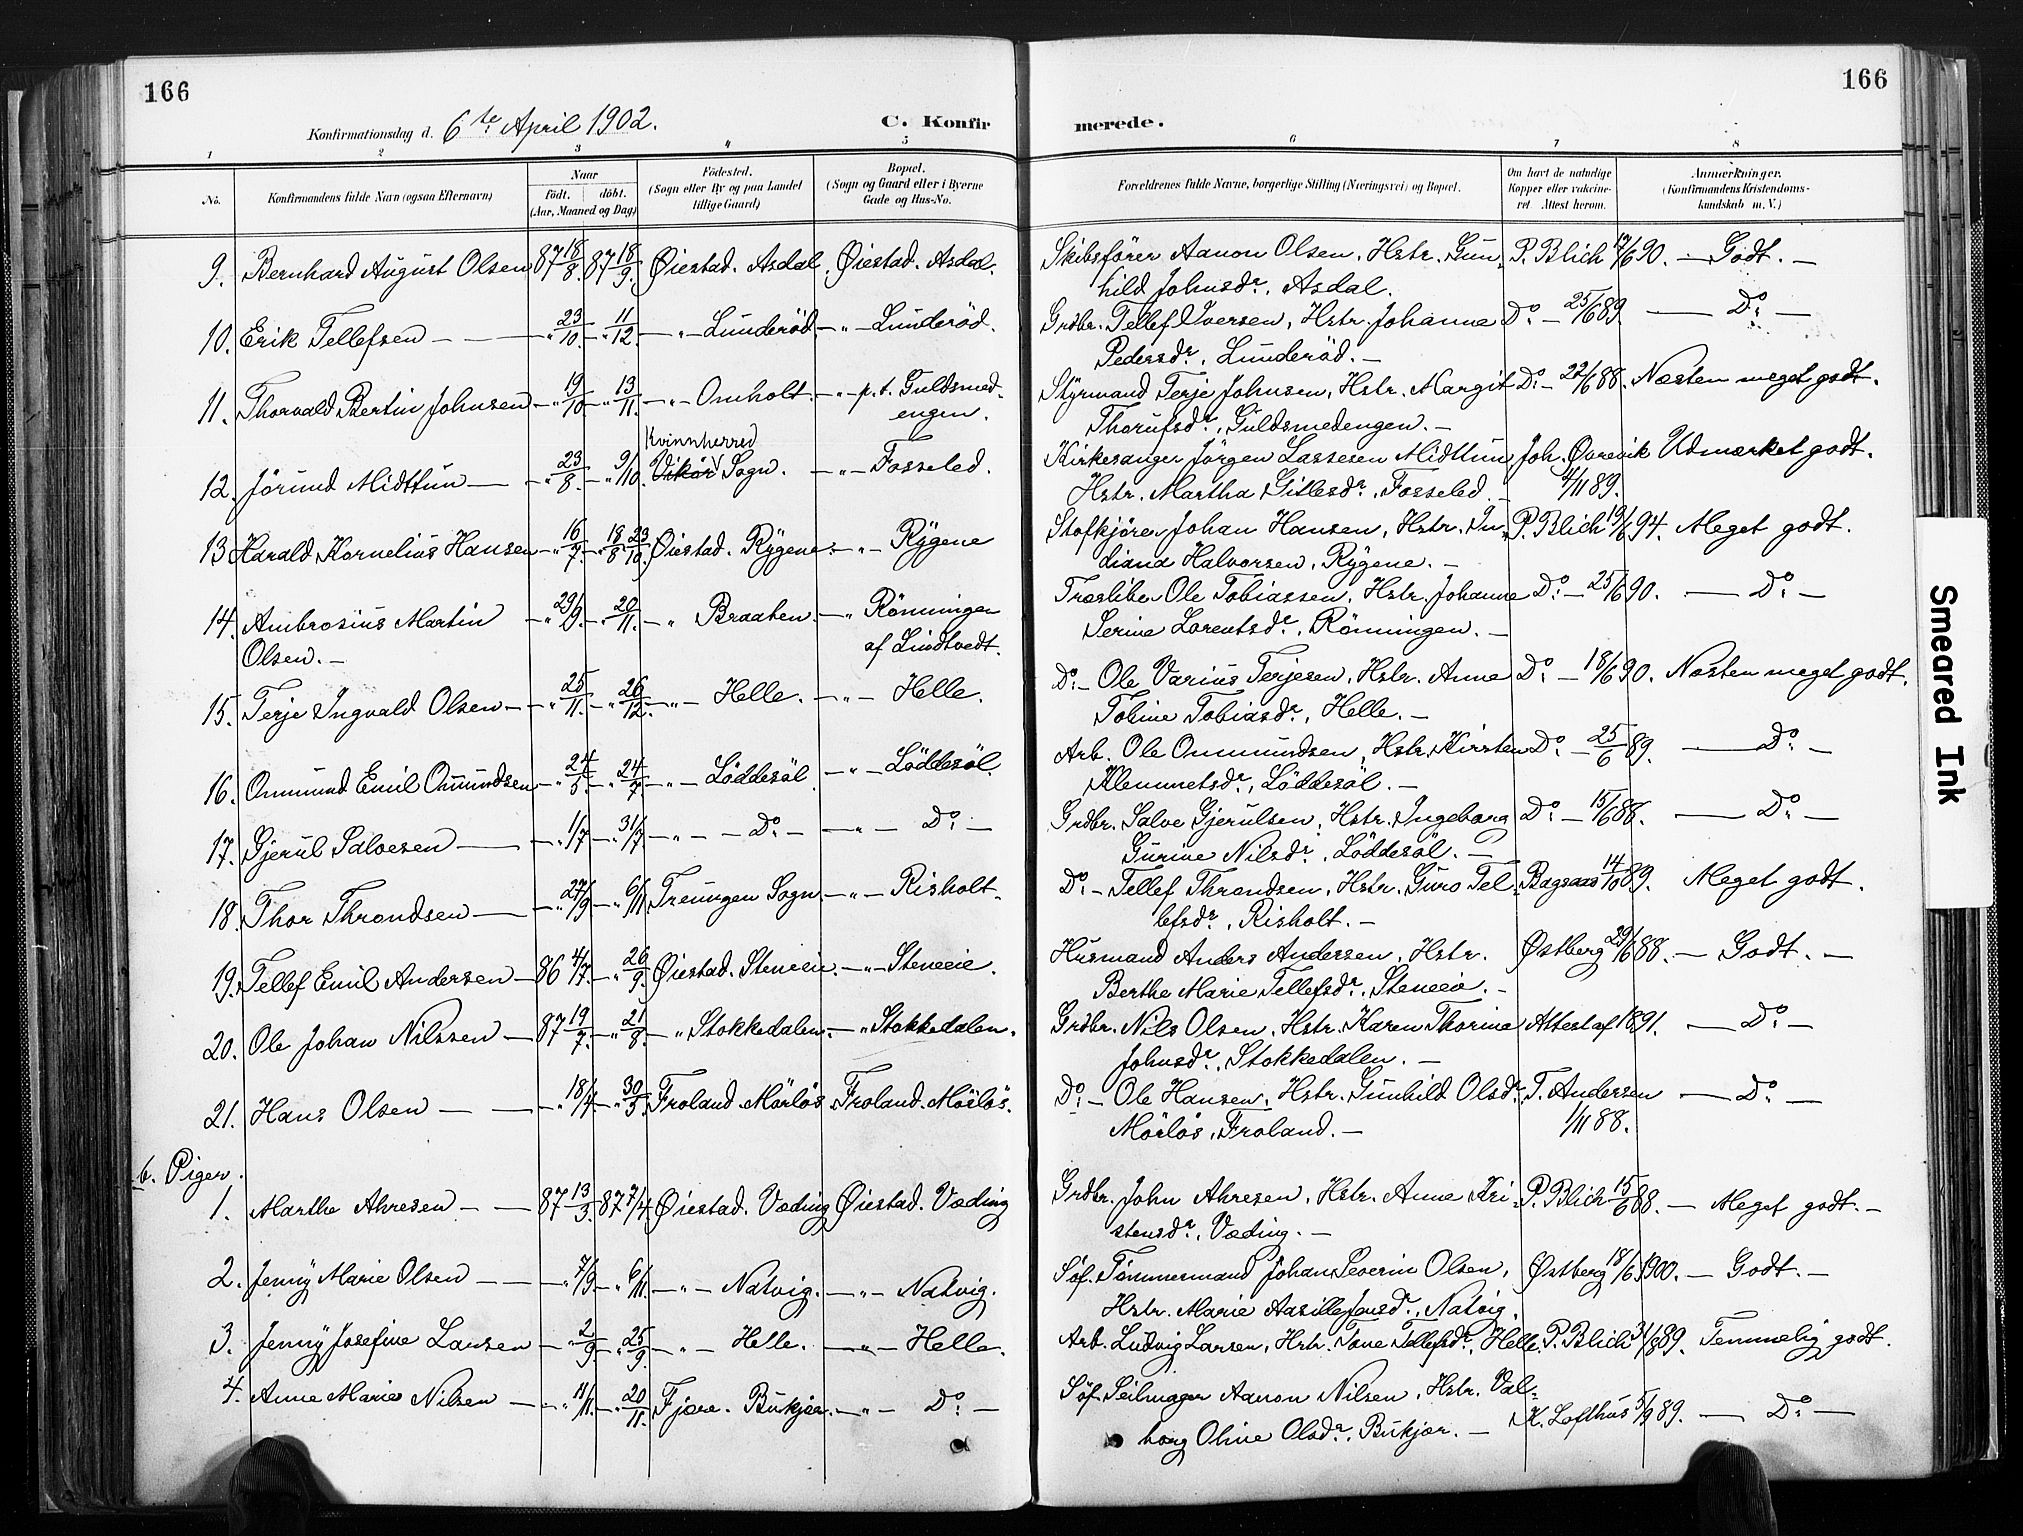 166
166
Konfirmationsdag d. 6te April 1902.
C. Konfirmerede.
1 2 3 4 5 6 7 8
No.
Konfirmandens fulde Navn (ogsaa Efternavn)
Naar
födt. döbt.
(Aar, Maaned og Dag)
Födested.
(Sogn eller By og paa Landet
tillige Gaard)
Bopæl.
(Sogn og Gaard eller i Byerne
Gade og Hus-No.
Forældrenes fulde Navne, borgerlige Stilling (Næringsvei) og Bopæl.
Om havt de naturlige
Kopper eller vakcine-
ret. Attest herom.
Anmærkninger.
(Konfirmandens Kristendoms-
kundskab m. V.)
9. Bernhard August Olsen 87 18/8. 87 18/9. Øiestad. Asdal. Øiestad. Asdal. Skibsfører Aanon Olsen, Hstr. Gun- P. Blich 17/6 90. — Godt. —
hild Johnsdr., Asdal.
10. Erik Tellefsen — — " 23/10. — " 11/12 — " Lunderöd — " — Lunderöd. Grdbr. Tellef Iversen, Hstr. Johanne Do. — 25/6 89. — Do. —
Pedersdr., Lunderöd. —
11. Thorvald Bertin Johnsen — " 19/10 — " 13/11. — " — Omholt — " — p.t. Guldsmed- Styrmand Terje Johnsen, Hstr. Margit Do. — 22/6 88. Næsten meget godt.
engen. Thorufsdr., Guldsmedengen. —
Kvinnherred
12. Jörund Midttun — " 23/8. — " 9/10. Vikör Sogn. — " — Fosseled. Kirkesanger Jörgen Lassesen Midttun Joh. Qvarvik Udmærket godt.
Hstr. Martha Gitlesdr., Fosseled. — 4/11 89.
13 Harald Kornelius Hansen — " 16/7. — " 18/8 23/10. Øiestad. Rygene. — " — Rygene Stofkjörer Johan Hansen, Hstr. In- P. Blich 19/6 94. Meget godt.
diana Halvorsen, Rygene. —
14. Ambrosius Martin — " 29/9. — " 20/11. — " Braaten — " Rönningen Træsliber Ole Tobiassen, Hstr. Johanne Do. — 25/6 90. — Do. —
Olsen. — af Lindtvedt. Serine Lorentsdr., Rönningen. —
15. Terje Ingvald Olsen — " 25/11. — " 26/12. — " — Helle. — " — Helle. Do. — Ole Varius Terjesen, Hstr. Anne Do. — 18/6 90. Næsten meget godt.
Tobine Tobiasdr., Helle. —
16. Ommund Emil Ommundsen — " 24/5. — " 24/7. — " — Löddesöl — " — Löddesöl. Arb. Ole Ommundsen, Hstr. Kirsten Do. — 25/6 89. — Do. —
Klemmetsdr., Löddesöl. —
17. Gjerul Salvesen — " 1/7 — " 31/7 — " — Do. — — " — Do. — Grdbr. Salve Gjerulsen, Hstr. Ingeborg Do. — 15/6 88. — Do. —
Gurine Nilsdr., Löddesöl. —
18. Thor Throndsen — " 27/9 — " 6/11 Treungen Sogn. — " — Risholt. Do. — Tellef Throndsen, Hstr. Guro Tel- Bagsaas 14/10 89. Meget godt.
lefsdr., Risholt. —
19. Tellef Emil Andersen — 86 4/7. — " 26/9. Øiestad. Steneeie. — " — Steneeie. Husmand Anders Andersen, Hstr. Østberg 29/6 88. — Godt. —
Berthe Marie Tellefsdr., Steneeie. —
20. Ole Johan Nilssen — 87 19/7. — " 21/8. — " Stokkedalen. — " Stokkedalen. Grdbr. Nils Olsen, Hstr. Karen Thorine Attest af 1891. — Do. —
Johnsdr., Stokkedalen. —
21. Hans Olsen — — " 18/4 — " 30/5. Froland. Mörlös. Froland. Mörlös. Do. — Ole Hansen, Hstr. Gunhild Olsdr., T. Andersen — Do. —
Mörlös, Froland. — 1/11 88.
b. Piger.
1. Marthe Ahresen — — 87 13/3. 87 7/4. Øiestad. Væding Øiestad. Væding Grdbr. John Ahresen, Hstr. Anne Kri- P. Blich 15/6 88. — Meget godt. —
stensdr., Væding. —
2. Jenny Marie Olsen — — " 7/9 — " 6/11. — " — Natvig. — " — Natvig. Söf. Tömmermand Johan Severin Olsen, Østberg 18/6 1900. — Godt. —
Hstr. Marie Aasille Jensdr., Natvig.
3. Jenny Josefine Larsen — " 2/9. — " 25/9. — " — Helle. — " — Helle. Arb. Ludvig Larsen, Hstr. Tone Tellefsdr., Helle. P. Blich 31/8 89. Temmelig godt.
4. Anne Marie Nilsen — " 11/11. — " 20/11. Fjære. Bukjær. — " — Do. — Söf. Seilmager Aanon Nilsen, Hstr. Val- K. Lofthus 5/9 89. — Do. —
borg Oline Olsdr., Bukjær. —
Smeared Ink